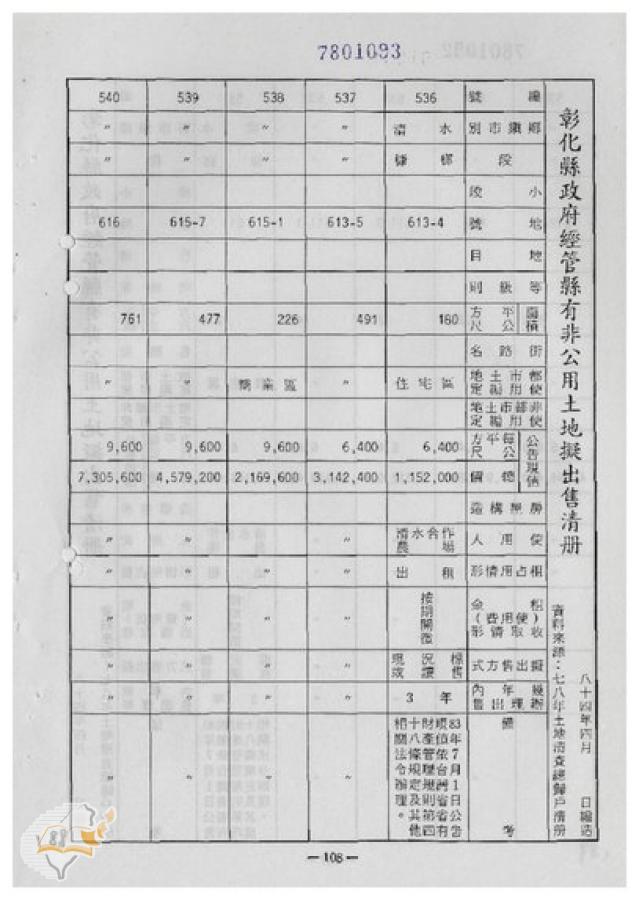 7801093
彰化縣政府經管縣有非公用土地擬出售清冊
資料來源：七八年土地清查總歸戶清冊
八十四年四月 日編造
540 539 538 537 536 號編
〃 〃 〃 〃 清水 別市鎮鄉
〃 〃 〃 〃 槺榔 段
段小
616 615-7 615-1 613-5 613-4 號地
目地
則級等
761 477 226 491 180 方平尺公 面積
名路街
〃 〃 商業區 〃 住宅區 地土市都定編用使
地土市都非定編用使
9,600 9,600 9,600 6,400 6,400 方平每尺公 公告現值
7,305,600 4,579,200 2,169,600 3,142,400 1,152,000 價總
造構屋房
〃 〃 〃 〃 清水合作農場 人用使
〃 〃 〃 〃 出租 形情用占租
〃 〃 〃 〃 按期開徵 金租(費用使)形情取收
〃 〃 〃 〃 現況標售或讓售 式方售出擬
〃 〃 〃 〃 3年 內年幾售出理辦
〃 〃 〃 〃 83年7月1日公告現值依台灣省省有財產管理規則第四十八條規定及其他相關法令辦理。 備考
—108—